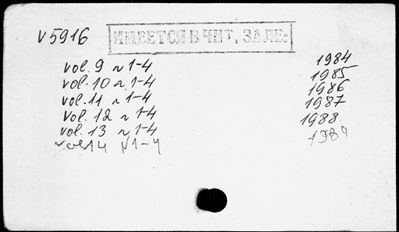 V5916
ИМЕЕТСЯ В ЧИТ. ЗАЛЕ.
vol. 9 n 1-4 1984
vol. 10 n 1-4 1985
vol. 11 n 1-4 1986
vol. 12 n 1-4 1987
vol. 13 n 1-4 1988
vol 14 N 1-4 1989